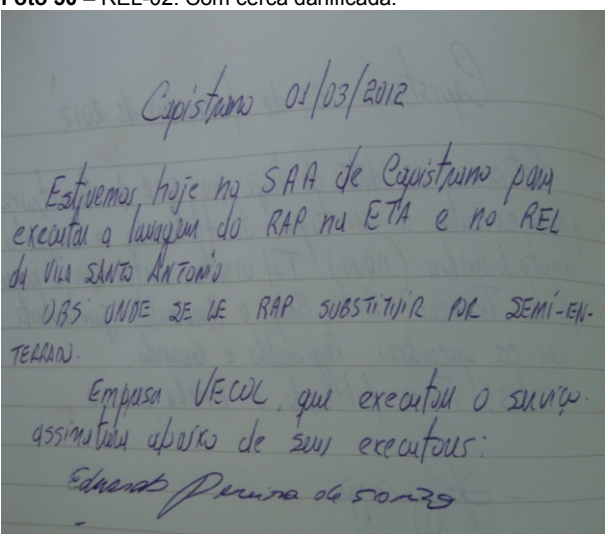 Foto 50 – REL-02. Com cerca danificada.
Capistrano 01/03/2012
Estivemos hoje no SAA de Capistrano para
executar a lavagem do RAP na ETA e no REL
da Vila SANTO ANTONIO
OBS: ONDE SE LE RAP SUBSTITUIR POR SEMI-EN-
TERRADO.
Empresa VECOL, que executou o serviço.
assinatura abaixo de seus executores:
Eduardo Pereira de Souza